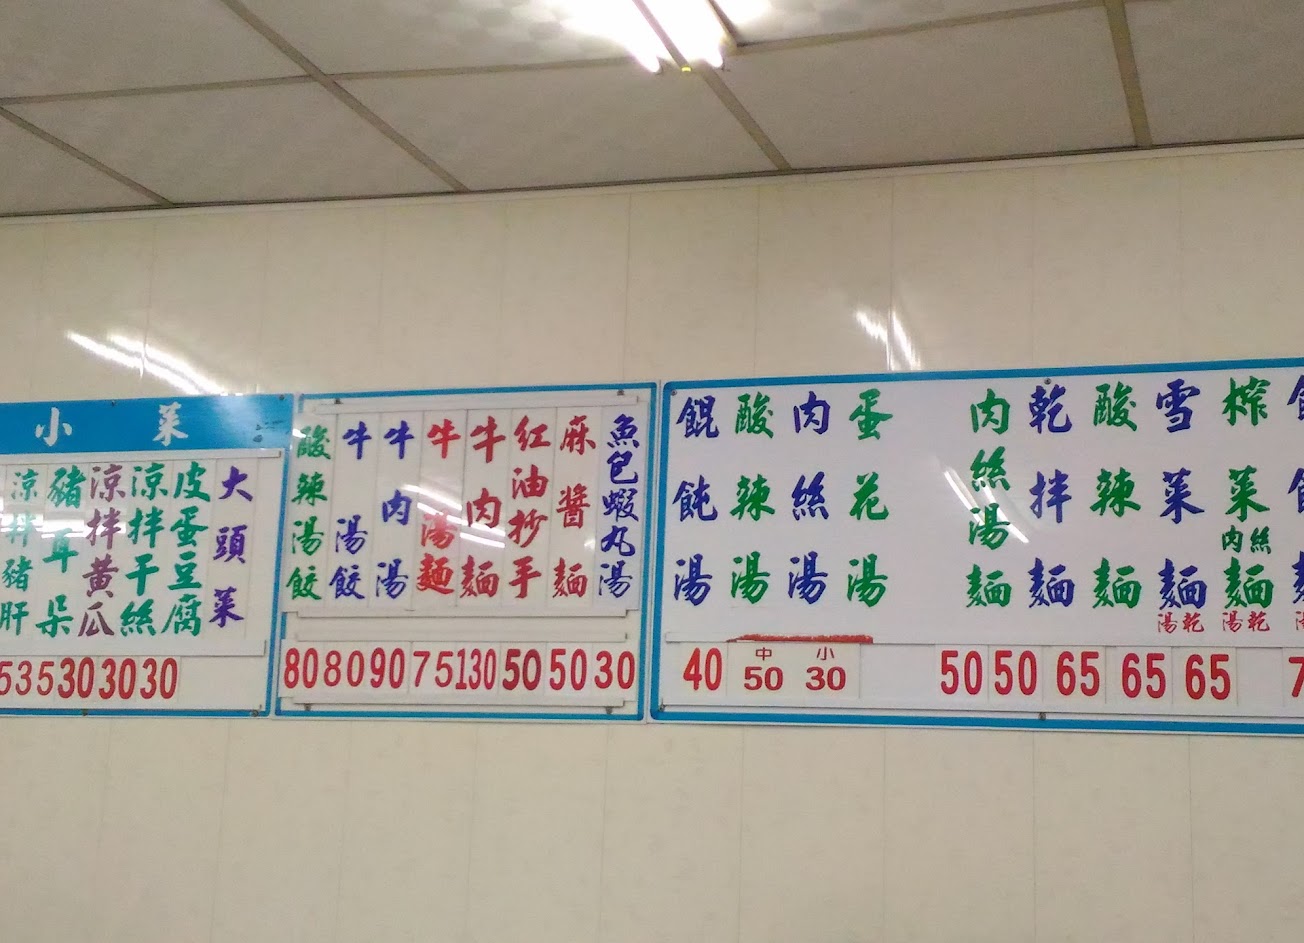 小菜
大頭菜
皮蛋豆腐
涼拌干絲
涼拌黃瓜
豬耳朵
涼拌豬肝
30
30
30
35
魚包蝦丸湯
麻醬麵
紅油抄手
牛肉麵
牛湯麵
牛肉湯
牛湯餃
酸辣湯餃
30
50
50
130
75
90
80
80
榨菜肉絲麵
湯乾
雪菜麵
湯乾
酸辣麵
乾拌麵
肉絲湯麵
蛋花湯
肉絲湯
酸辣湯
餛飩湯
65
65
65
50
50
小
30
中
50
40